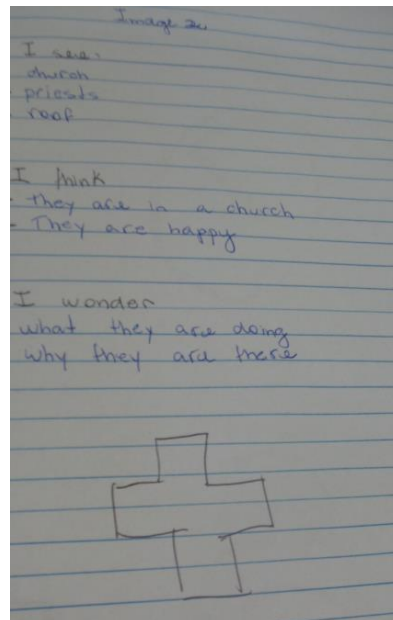 Image 2.
I see:
church
priests
roof
I think
- they are in a church
- They are happy
I wonder
what they are doing
why they are there